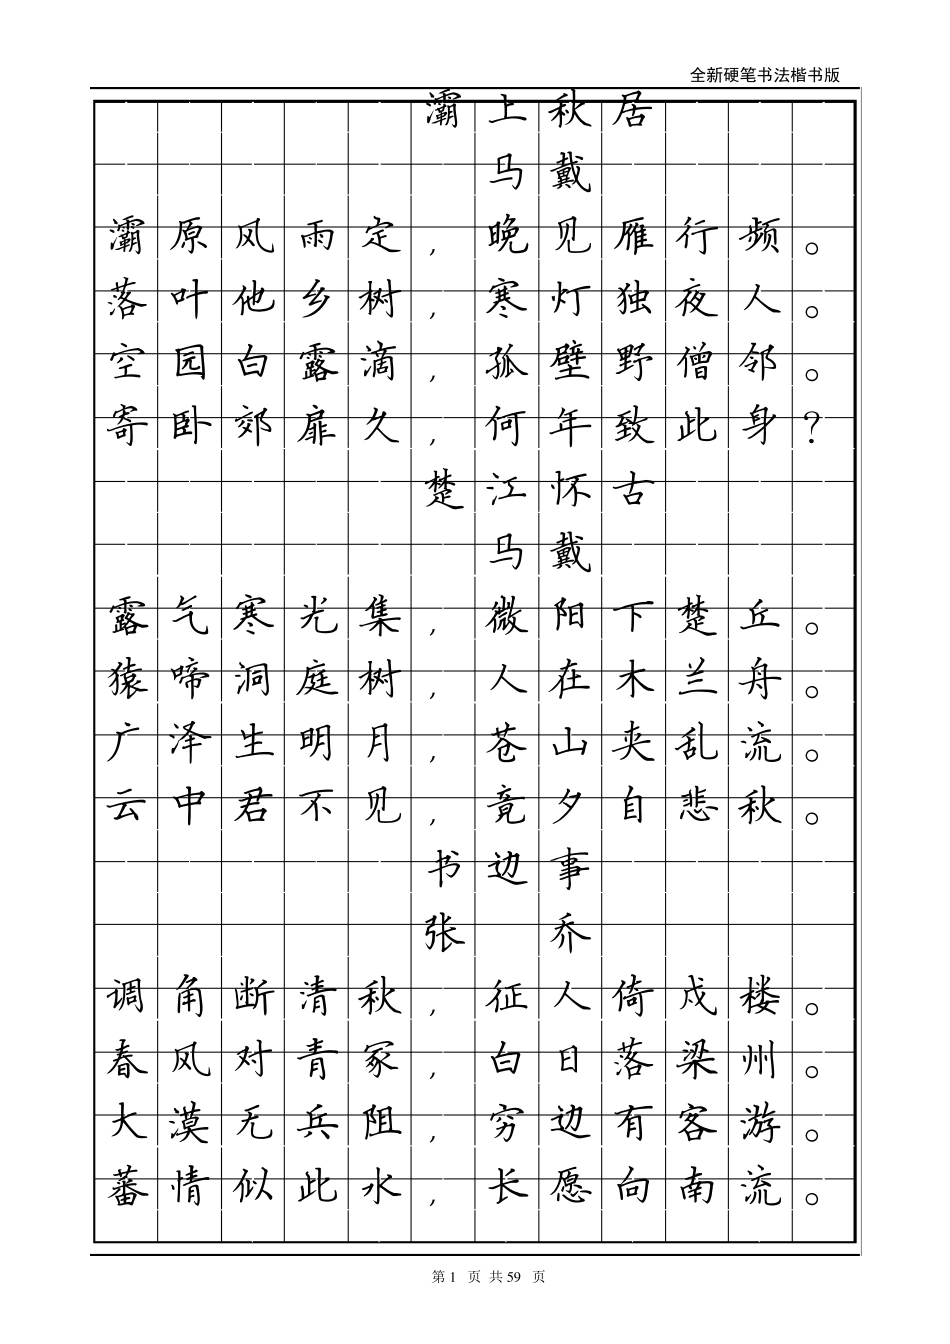 全新硬笔书法楷书版
灞上秋居
马戴
灞原风雨定，晚见雁行频。
落叶他乡树，寒灯独夜人。
空园白露滴，孤壁野僧邻。
寄卧郊扉久，何年致此身？
楚江怀古
马戴
露气寒光集，微阳下楚丘。
猿啼洞庭树，人在木兰舟。
广泽生明月，苍山夹乱流。
云中君不见，竟夕自悲秋。
书边事
张 乔
调角断清秋，征人倚戍楼。
春风对青冢，白日落梁州。
大漠无兵阻，穷边有客游。
蕃情似此水，长愿向南流。
第 1 页 共 59 页